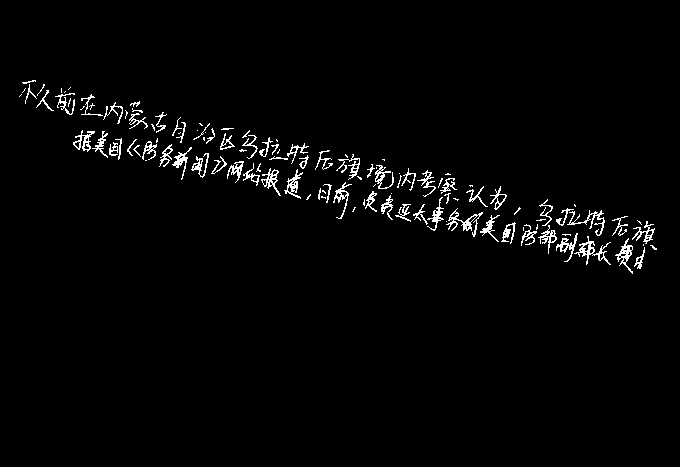 不久前在内蒙古自治区乌拉特后旗境内考察认为，乌拉特后旗
据美国《防务新闻》网站报道，日前，负责亚太事务的美国防部副部长费